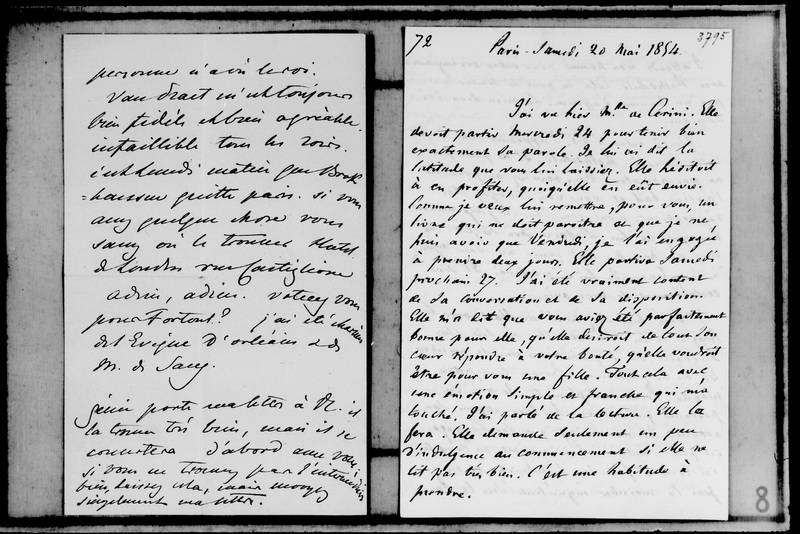 personne n'a vu le roi.
Van Praet m'est toujours
bien fidèle et bien agréable.
infaillible tous les soirs.
c'est lundi matin que Brok=
=hausen quitte paris. si vous
avez quelque chose vous
savez où le trouver Hotel
de Londres rue Castiglione
adieu, adieu. voterez vous
pour Fortoul? j'ai été
de l'Evêque D'orléans & de
M. de Sacy.
j'ai porté ma lettre à M. il
la trouve très bien, mais il se
concertera d'abord avec vous,
si vous ne trouvez pas l'intermédiaire
bien, laissez cela, mais
simplement ma lettre.
72
3795
Paris - Samedi 20 Mai 1854.
J'ai vu hier Mlle de Cerini. Elle
devoit partir Mercredi 24 pour tenir bien
exactement sa parole. Je lui ai dit la
latitude que vous lui laissiez. Elle hésitoit
à en profiter, quoiqu'elle en eût envie.
Comme je veux lui remettre, pour vous, un
livre qui ne doit paroitre et que je ne
puis avoir que Vendredi, je l'ai engagée
à prendre deux jours. Elle partira Samedi
prochain 27. J'ai été vraiment content
de sa conversation et de sa disposition.
Elle m'a dit que vous aviez été parfaitement
bonne pour elle, qu'elle desiroit de tout son
cœur répondre à votre bonté, qu'elle voudroit
être pour vous une fille. Tout cela avec
une émotion simple et franche qui m'a
touché. J'ai parlé de la lecture. Elle la
fera. Elle demande seulement un peu
d'indulgence au commencement si elle ne
lit pas très bien. C'est une habitude à
prendre.
8